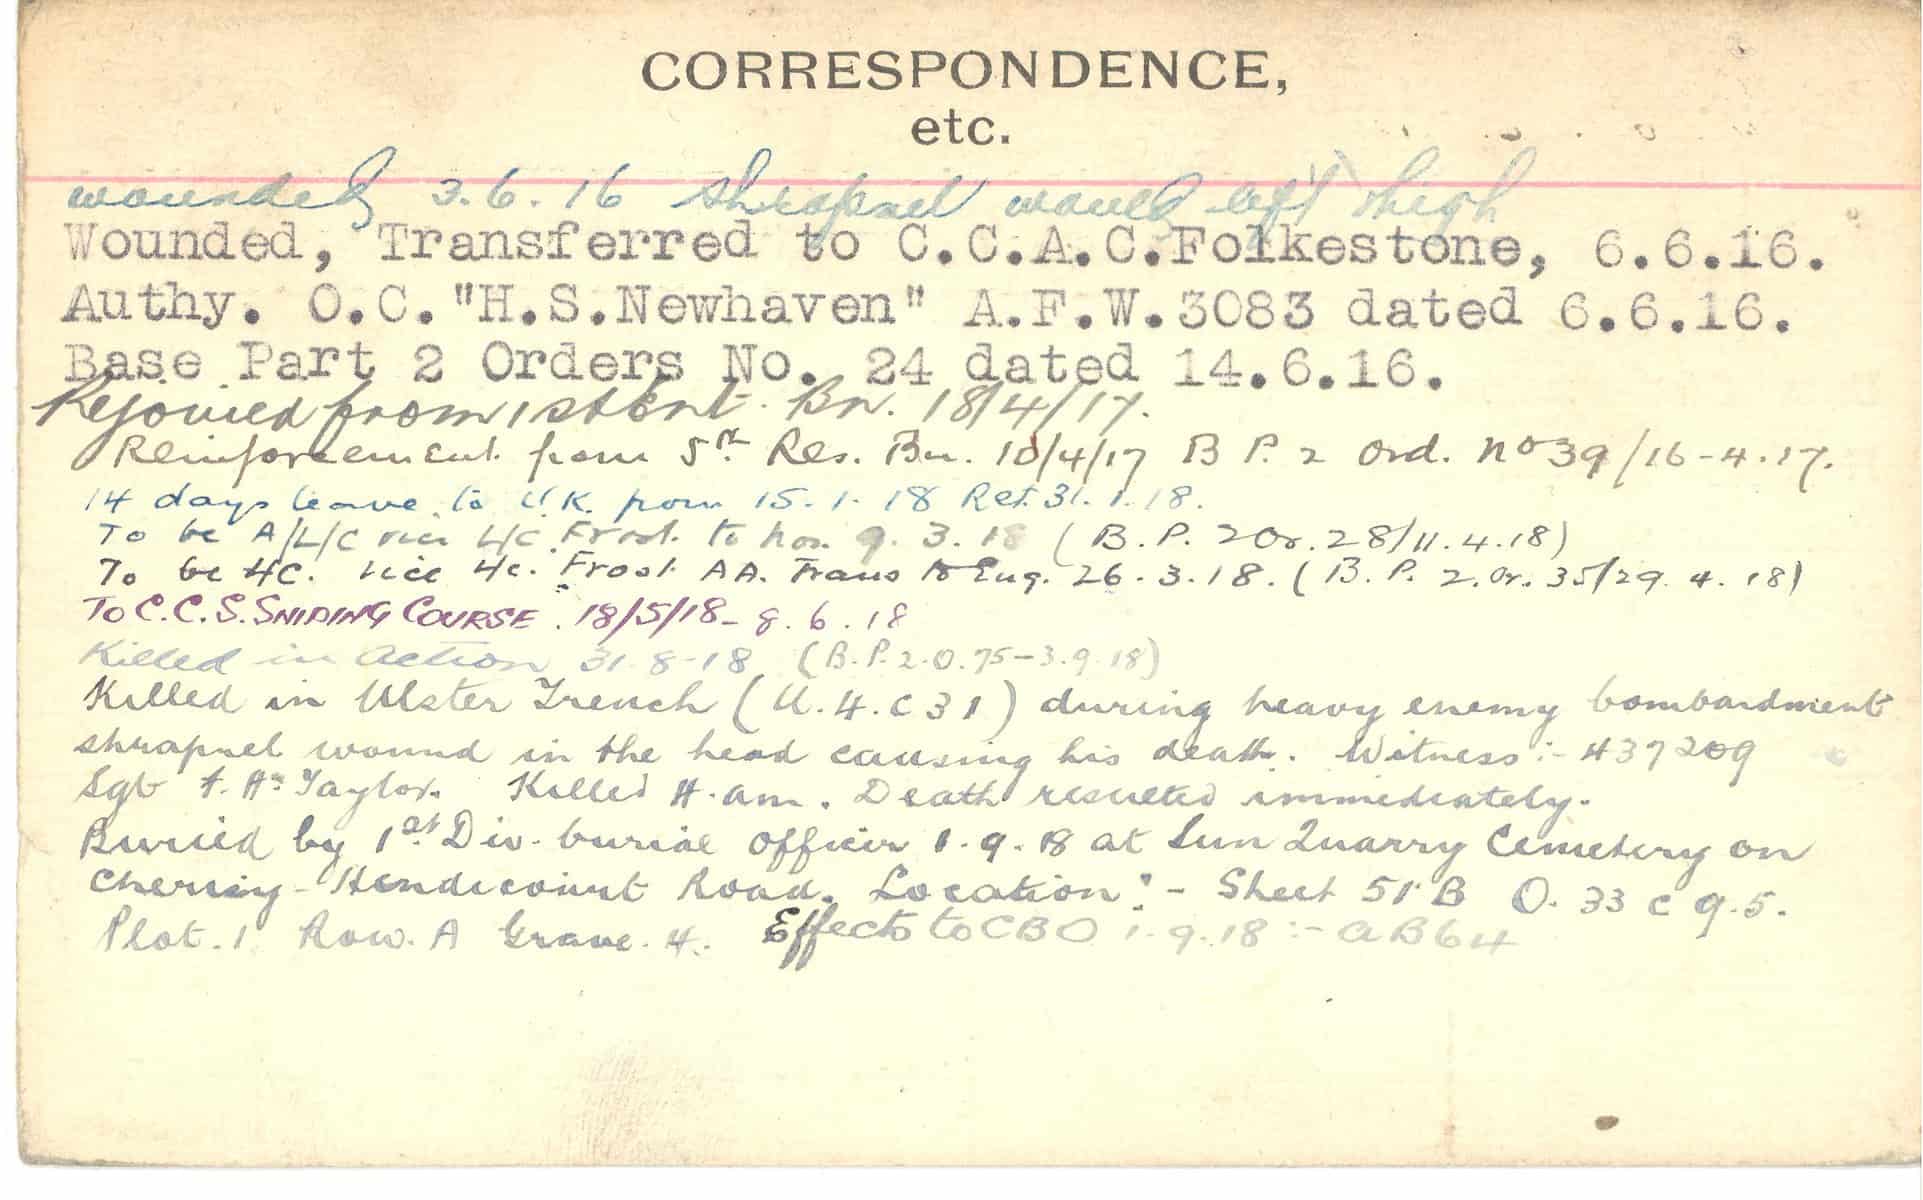 CORRESPONDENCE,
etc.
wounded 3.6.16 shrapnel wound left thigh
Wounded, Transferred to C.C.A.C.Folkestone, 6.6.16.
Authy. O.C."H.S.Newhaven" A.F.W.3083 dated 6.6.16.
Base Part 2 Orders No. 24 dated 14.6.16.
Rejoined from 1st Ent. Bn. 18/4/17.
Reinforcement from 5th Res. Bn. 10/4/17 B P. 2 Ord. No 39/16-4.17.
14 days leave to U.K. from 15.1.18 Ret. 31.1.18.
To be A/L/C vice L/C Frost to hos. 9.3.18 (B.P. 2 Or. 28/11.4.18)
To be L/C. vice L/c. Frost AA. Trans to Eng. 26.3.18. (B.P. 2.Or. 35/29.4.18)
To C.C.S. SNIPING COURSE. 18/5/18-8.6.18
Killed in Action 31-8-18 (B.P.2.O.75-3.9.18)
Killed in Ulster Trench (U.4.C 31) during heavy enemy bombardment
shrapnel wound in the head causing his death. Witness:- 437209
Sgt F. H. Taylor. Killed 4. am. Death resulted immediately.
Buried by 1st Div. burial officer 1.9.18 at Sun Quarry Cemetery on
Cherisy-Hendicourt Road. Location:- Sheet 51 B O. 33 c 9.5.
Plot. 1 Row. A Grave. 4. Effects to CBO 1.9.18:- AB64